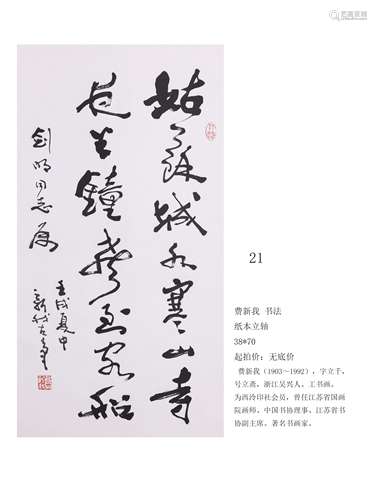 姑蘇城外寒山寺
夜半鐘聲到客船
剑明同志属
壬戌夏中
新我左笔
21
费新我 书法
纸本立轴
38*70
起拍价：无底价
费新我（1903～1992），字立千，
号立斋，浙江吴兴人。工书画。
为西泠印社会员，曾任江苏省国画
院画师、中国书协理事、江苏省书
协副主席。著名书画家。